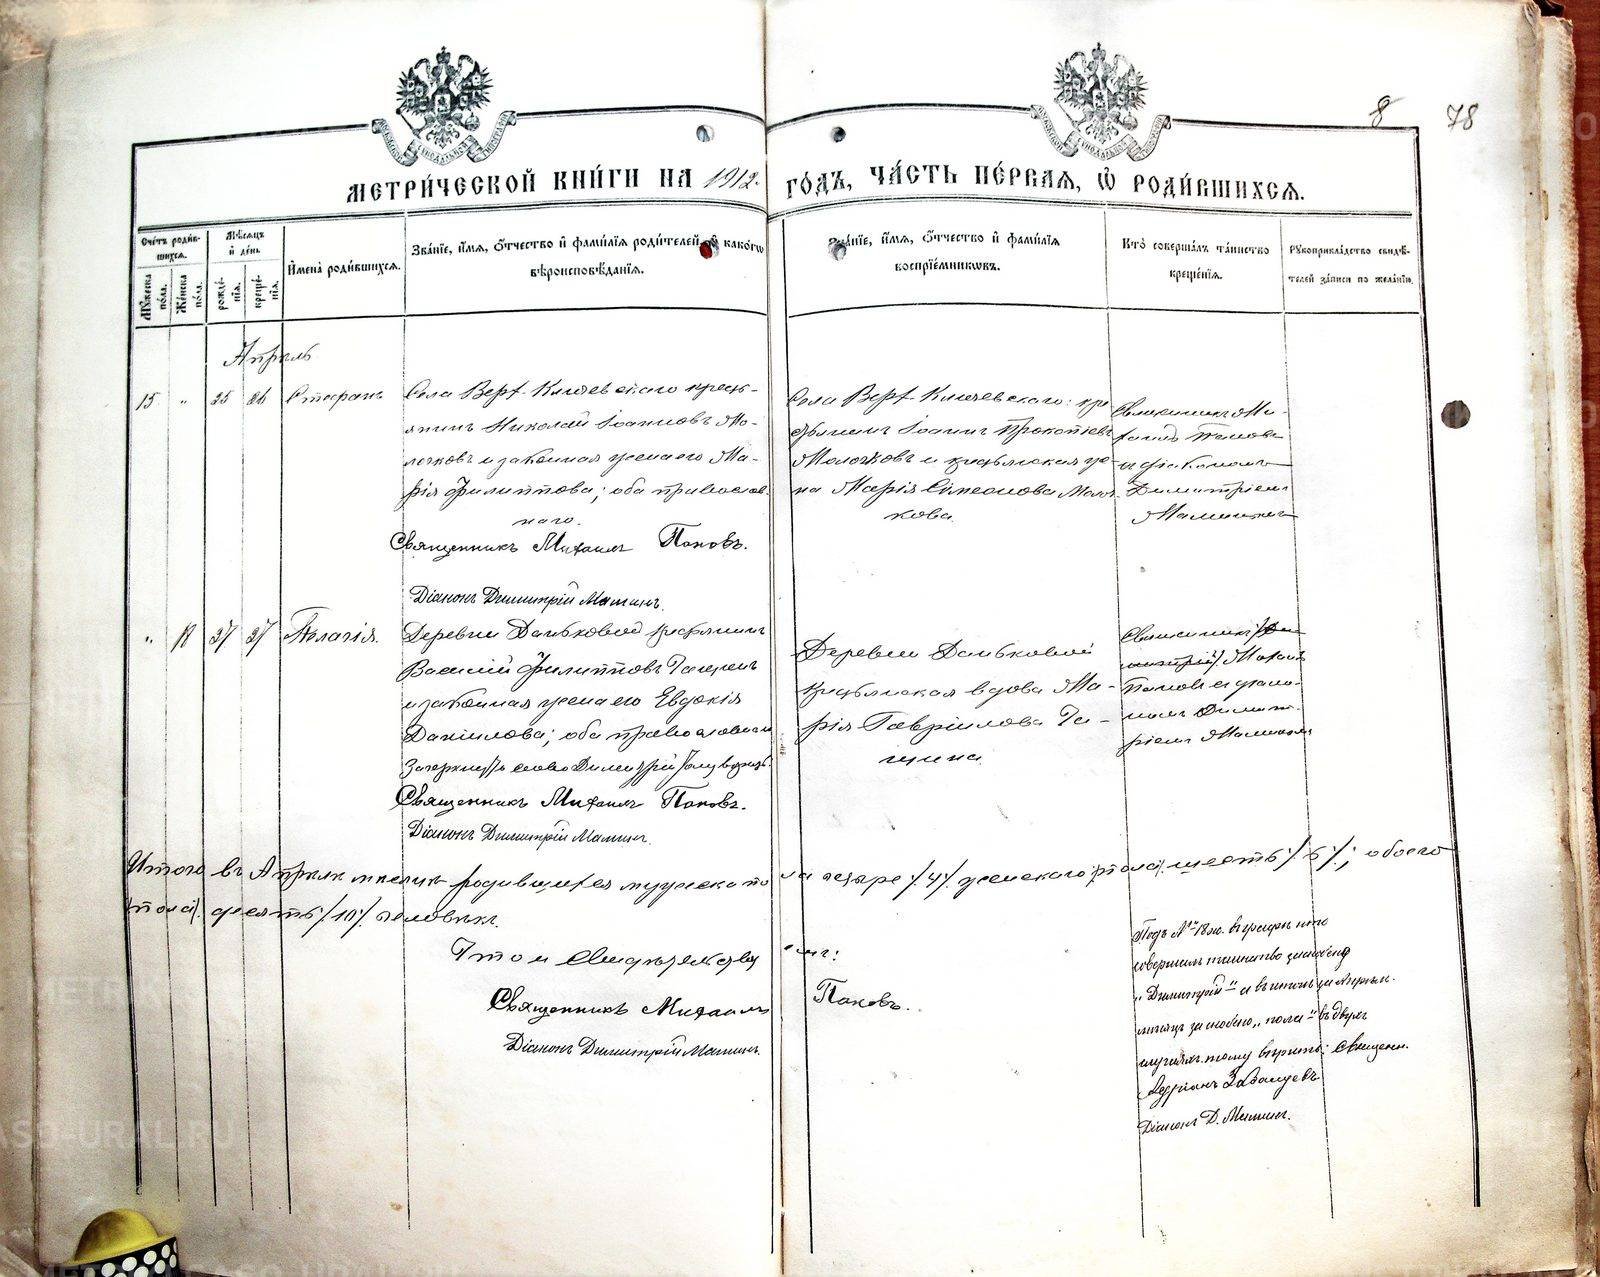 8 78
МЕТРИ́ЧЕСКОЙ КНИ́ГИ НА 1912. ГО́ДЪ, ЧА́СТЬ ПЕ́РВАЯ, Ѡ҆ РОДИ́ВШИХСЯ.
Сче́тъ роди́в-
шихся.
Му́жеска по́ла.
Же́нска по́ла.
Мѣ́сяцъ
и҆ де́нь
рожде́-
нїя.
креще́-
нїя.
И҆мена̀ роди́вшихся.
Зва́нїе, и҆́мя, ѻ҆́тчество и҆ фами́лїя роди́телей, и҆ како́гѡ
вѣроисповѣ́данїя.
Зва́нїе, и҆́мя, ѻ҆́тчество и҆ фами́лїя
воспрїе́мникѡвъ.
Кто̀ соверша́лъ та́инство
креще́нїя.
Рꙋкоприкла́дство свидѣ́-
телей за́писи по жела́нїю.
Апрѣль
15 „ 25 26 Стефанъ
Села Верх-Ключевскаго кресть-
янинъ Николай Іоанновъ Мо-
лочковъ и законная жена его Ма-
рія Филиппова; оба православ-
наго.
Священникъ Михаилъ Поповъ.
Діаконъ Димитрій Маминъ.
Села Верх-Ключевскаго кре-
стьянинъ Іоаннъ Прокопіевъ
Молочковъ и крестьянская же-
на Марія Симеонова Молоч-
кова.
Священникъ Ми-
хаилъ Поповъ
и діаконъ
Димитріемъ
Маминъ
„ 18 27 27 Пелагія.
Деревни Даньковой крестьянинъ
Василій Филипповъ Тащинъ
и законная жена его Евдокія
Даніилова; оба православн
Зачеркнутъ слово Димитрій
Священникъ Михаилъ Поповъ.
Діаконъ Димитрій Маминъ.
Деревни Даньковой
крестьянская вдова Ма-
рія Гавріилова Та-
щина
Священникъ /Ди-
митрій/. Михаилъ
Поповъ и діако-
номъ Димит-
ріемъ Маминымъ
Итого въ Апрѣлѣ мѣсяцѣ родившихся мужеска по ла четыре /4/. женскаго /пола/. шесть /6/.; обоего
/пола/. десять /10/. человѣкъ.
Въ томъ свидѣтельству емъ:
Священникъ Михаилъ Поповъ.
Діаконъ Димитрій Маминъ.
Подъ № 18 ж. въ графѣ кто
совершалъ таинство
„Димитрій“ и въ итогѣ за Апрѣль
мѣсяцъ за скобою „пола“ въ двухъ
случаяхъ тому вѣрить: Священн.
Адріанъ
Діаконъ Д. Маминъ.